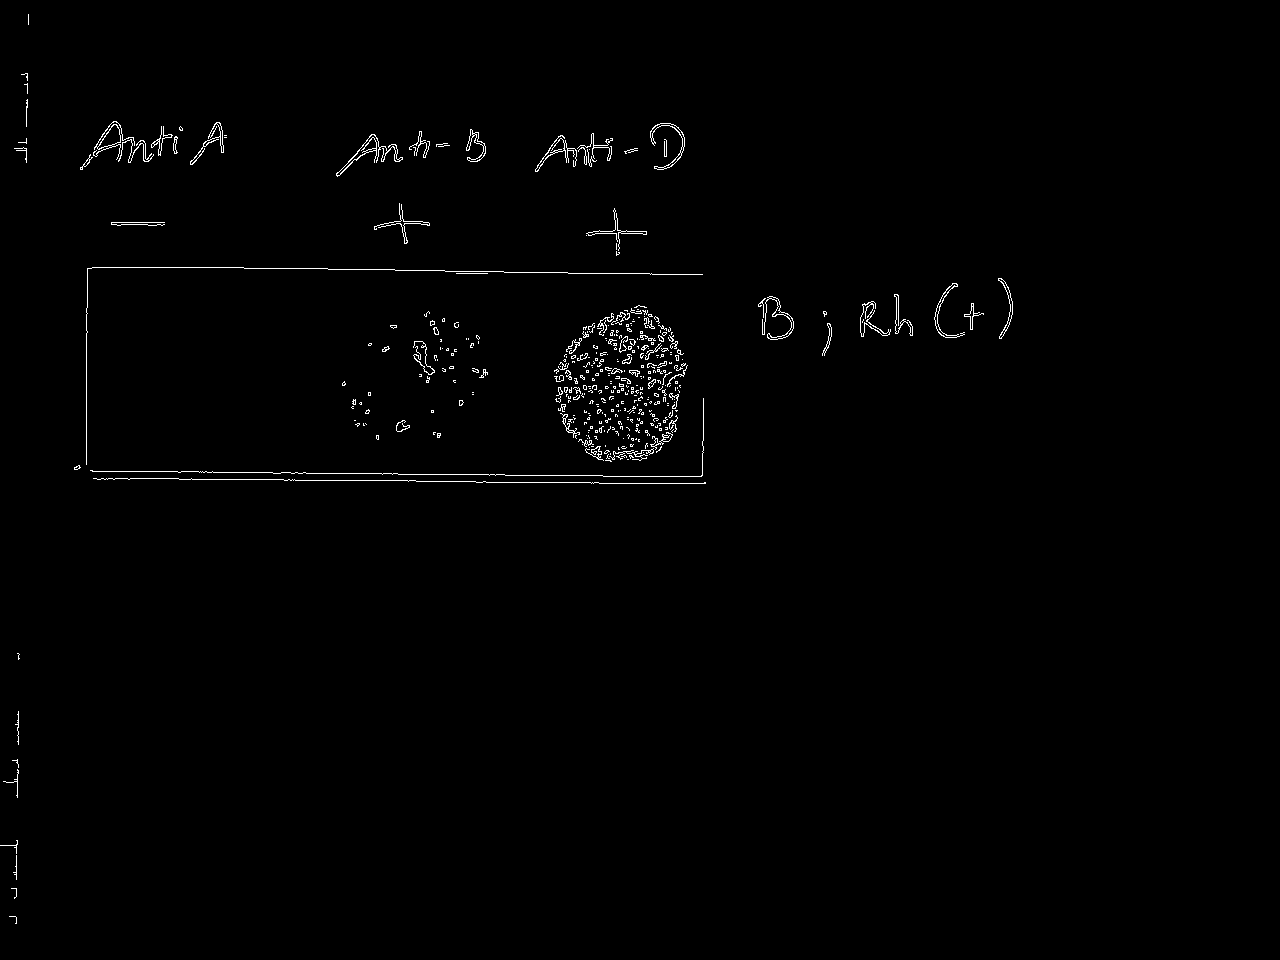 Anti A Anti-B Anti-D
— + +
B ; Rh (+)